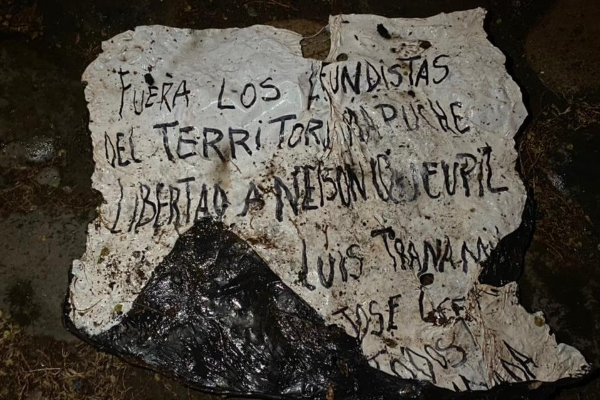 FUERA LOS FUNDISTAS
DEL TERRITORI MAPUCHE
LIBERTAD A NELSON QUEUPIL
LUIS TRANAMI
JOSE
TODOS